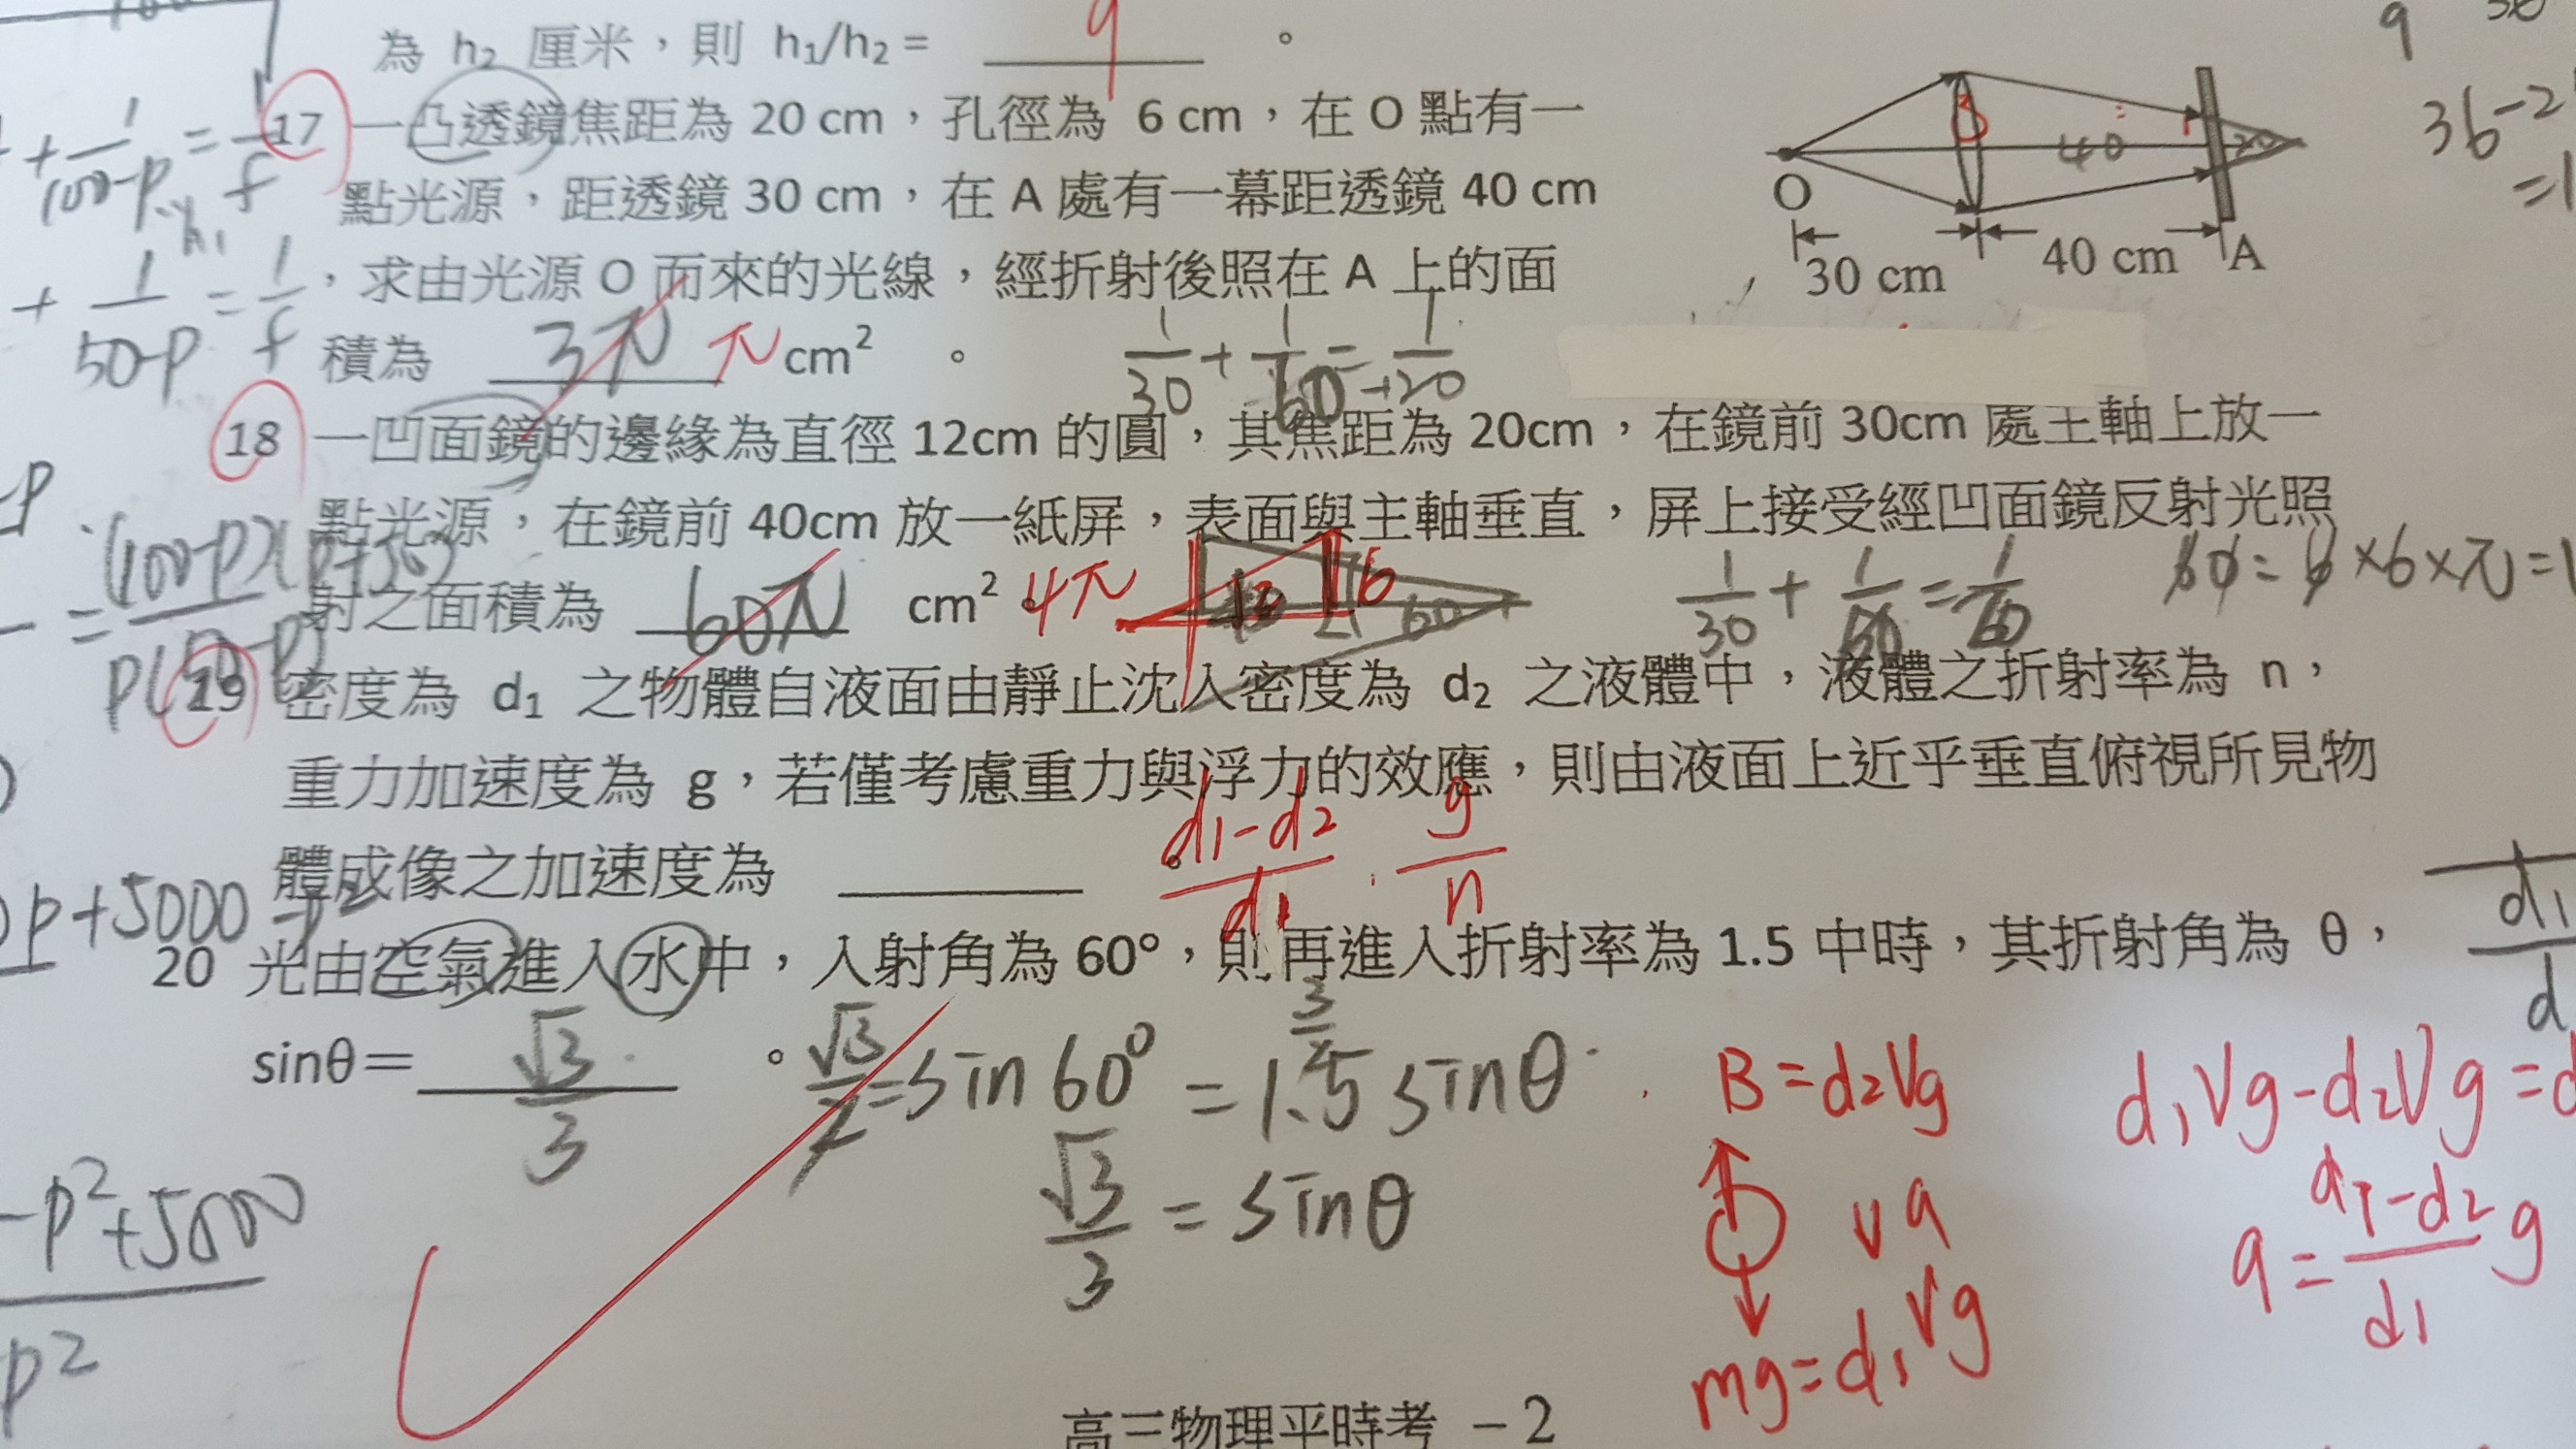 為 h₂ 厘米，則 h₁/h₂ = 9 。
17 一凸透鏡焦距為 20 cm，孔徑為 6 cm，在 O 點有一
點光源，距透鏡 30 cm，在 A 處有一幕距透鏡 40 cm
，求由光源 O 而來的光線，經折射後照在 A 上的面
積為 3π π cm² 。
O
3
40
20
30 cm
40 cm
A
1/30 + 1/60 = 1/20
18 一凹面鏡的邊緣為直徑 12cm 的圓，其焦距為 20cm，在鏡前 30cm 處主軸上放一
點光源，在鏡前 40cm 放一紙屏，表面與主軸垂直，屏上接受經凹面鏡反射光照
射之面積為 60π cm² 。 4π
6
60
19 密度為 d₁ 之物體自液面由靜止沈入密度為 d₂ 之液體中，液體之折射率為 n，
重力加速度為 g，若僅考慮重力與浮力的效應，則由液面上近乎垂直俯視所見物
體成像之加速度為 ＿＿ 。 (d₁-d₂)/d₁ · g/n
20 光由空氣進入水中，入射角為 60°，則再進入折射率為 1.5 中時，其折射角為 θ，
sinθ＝ √3/3 。 √3/2 = sin60° = 1.5 sinθ
3/2
√3/3 = sinθ
B = d₂Vg
a
mg = d₁Vg
d₁Vg-d₂Vg =
a = (d₁-d₂)/d₁ g
+ 1/(100-p) = 1/f
h₁
+ 1/(50-p) = 1/f
p+5000
-p²+5000
p²
高三物理平時考 －2